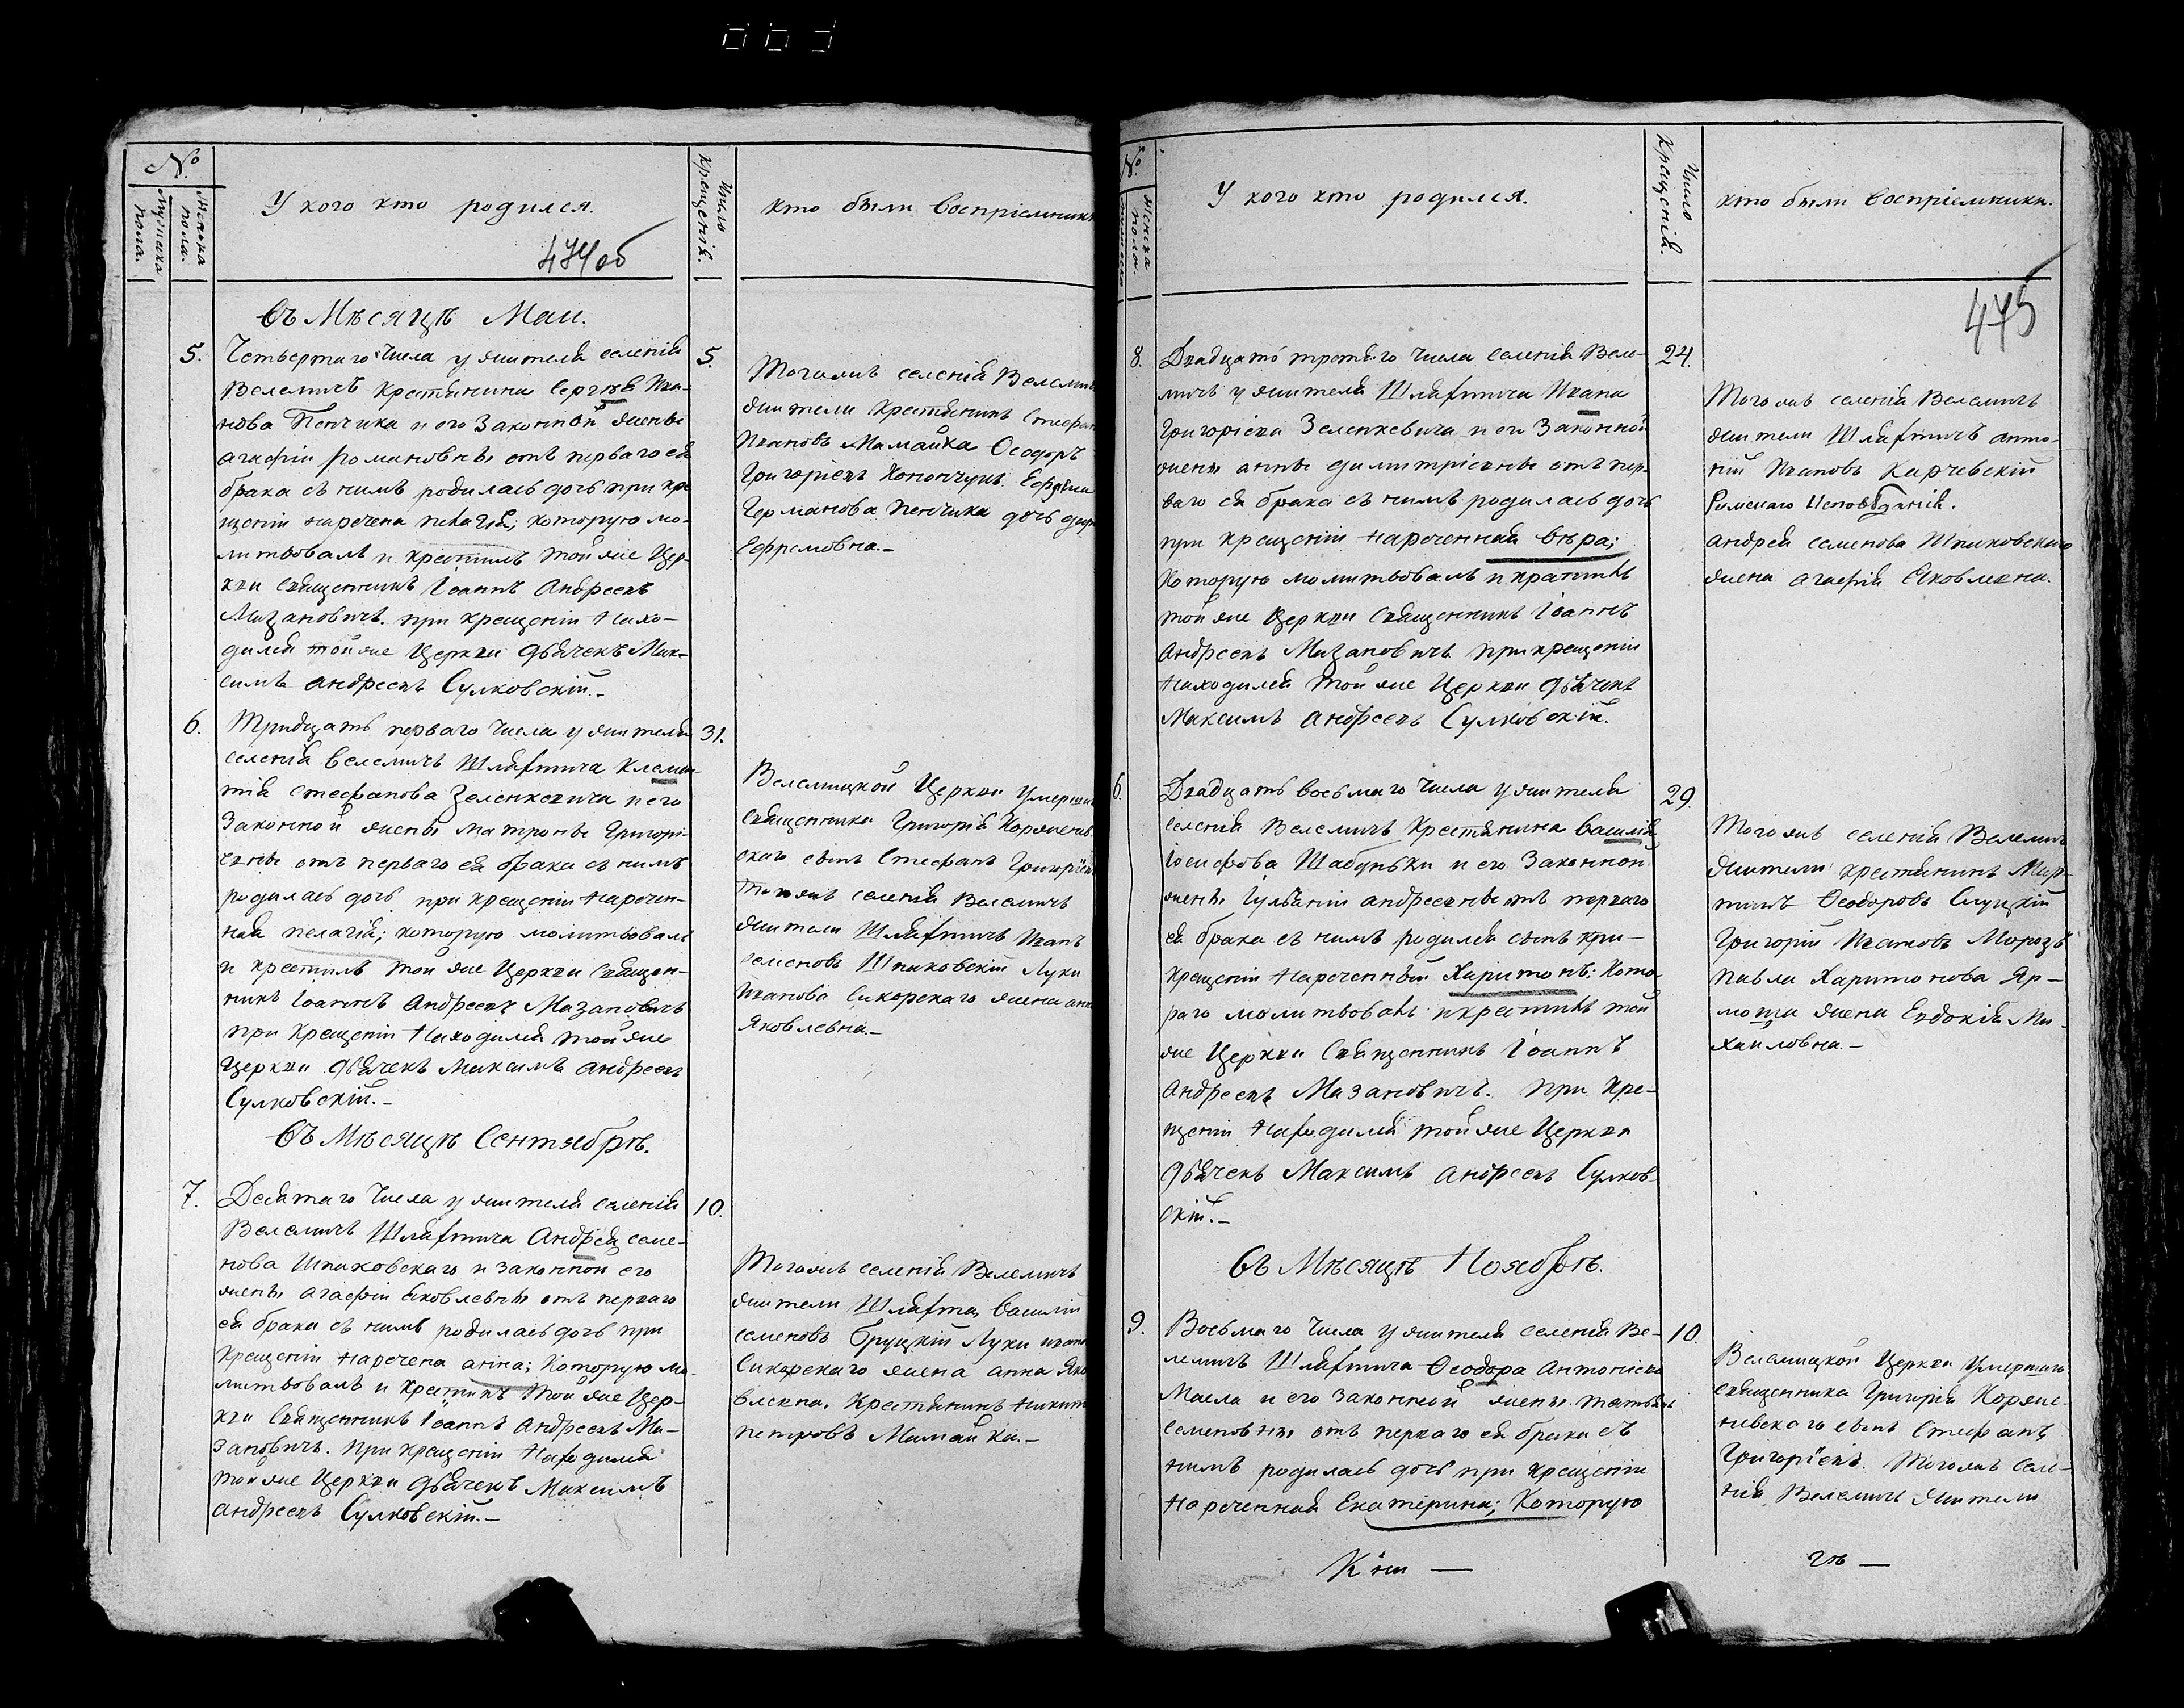 №
Мужеска пола.
Женска пола.
У кого кто родился.
474 об
Число крещенія.
Кто были воспріемник
Въ Мѣсяцѣ Маи.
5.
Четвертаго Числа у жителя селенія
Велемичъ Крестянина Сергѣя Ива-
нова Пенчика и его Законной жены
агафіи романовны отъ перваго ея
брака съ нимъ родилась дочь при кре
щеніи наречена пелагія; которую мо-
литвовалъ и крестилъ той же Цер-
кви Священникъ Іоаннъ Андреевъ
Мазановичъ. при крещеніи Нахо-
дился той же Церкви дьячекъ Мак-
симъ андреевъ Сулковскій.-
5.
Тогожъ селенія Велемич
жители Крестянинъ Стефан
Ивановъ Мамайка Ѳеодоръ
Григоріевъ Конончукъ. Ефрема
Германова пенчика дочь
Ефремовна.-
6.
Тридцать перваго Числа у жителя
селенія велемичъ Шляхтича Клемен-
тія стефанова Зеленкевича и его
Законной жены матроны Григорі-
евны отъ перваго ея брака съ нимъ
родилась дочь при крещеніи Наречен-
ная пелагія; которую молитвовалъ
и крестилъ той же Церкви Священ-
никъ Іоаннъ Андреевъ Мазановичъ
при Крещеніи Находился той же
Церкви дьячекъ Максимъ андреевъ
Сулковскій.-
31.
Велемицкой Церкви Умерша
Священника Григорія Корженев
скаго сынъ Стефанъ Григоріев
тогожъ селенія Велемичъ
жители Шляхтичъ Иванъ
семеновъ Шпаковскій Луки
Иванова Сикорскаго жена анн
Яковлевна.-
Въ Мѣсяцѣ Сентябрѣ.
7.
Десятаго Числа у жителя селенія
Велемичъ Шляхтича Андрея семе-
нова Шпаковскаго и законной его
жены агафіи Яковлевны отъ перваго
ея брака съ нимъ родилась дочь при
Крещеніи Наречена анна; Которую мо-
литвовалъ и Крестилъ той же Цер-
кви Священникъ Іоаннъ андреевъ Ма-
зановичъ. при крещеніи Находился
той же Церкви дьячекъ Максимъ
андреевъ Сулковскій.-
10.
Тогожъ селенія Велемичъ
жители Шляхта, Василій
семеновъ Бруцкій Луки иван
Сикорскаго жена анна Яко
влевна. Крестянинъ Никит
петровъ Мамайка.-
№
Женска пола.
У кого кто родился.
Число Крещенія.
кто были воспріемники.
475
8.
Двадцать третяго Числа селенія Веле-
мичъ у жителя Шляхтича Ивана
Григоріева Зеленкевича и его Законной
жены анны димитріевны отъ пер-
ваго ея брака съ нимъ родилась дочь
при крещеніи нареченная вѣра;
Которую молитвовалъ и крестилъ
той же Церкви Священникъ Іоаннъ
Андреевъ Мазановичъ при крещеніи
Находился той же Церкви дьячекъ
Максимъ андреевъ Сулковскій.
24.
Тогожъ селенія Велемичъ
жители Шляхтичъ анто-
ній Ивановъ Карчевскій
Римскаго Исповѣданія.
андрея семенова Шпаковскаго
жена агафія Яковлевна.
6.
Двадцать восьмаго Числа у жителя
селенія Велемичъ Крестянина василія
Іосифова Шабуньки и его Законной
жены Іуліаніи андреевны отъ перваго
ея брака съ нимъ родился сынъ при-
крещеніи Нареченный Харитонъ: Кото-
раго молитвовалъ и крестилъ той
же Церкви Священникъ Іоаннъ
андреевъ Мазановичъ. при Кре-
щеніи Находился той же Церкви
дьячекъ Максимъ андреевъ Сулков-
скій.-
29.
Тогожъ селенія Велемичъ
жители крестянинъ Мар-
тинъ Ѳеодоровъ Слуцкій
Григорій Ивановъ Морозъ
павла Харитонова Яр-
моша жена Евдокія Ми-
хаиловна.-
Въ Мѣсяцѣ Ноябрѣ.
9.
Восьмаго Числа у жителя селенія Ве-
лемичъ Шляхтича Ѳеодора Антоніева
Масла и его Законной жены татьяны
семеновны отъ перваго ея брака съ
нимъ родилась дочь при крещеніи
Нареченная Екатерина; Которую
10.
Велемицкой Церкви Умершаго
священника Григорія Корже-
невскаго сынъ Стефанъ
Григоріевъ. Тогожъ селе-
нія Велемичъ жители